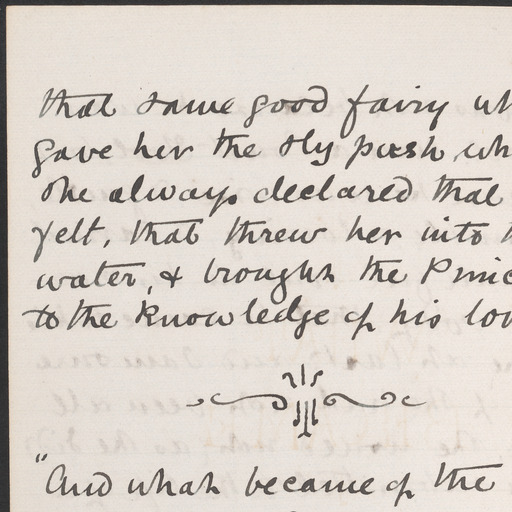 that same good fairy wh
gave her the sly push wh
she always declared that
felt, that threw her into t
water, & brought the Princ
to the knowledge of his lov
"And what became of the